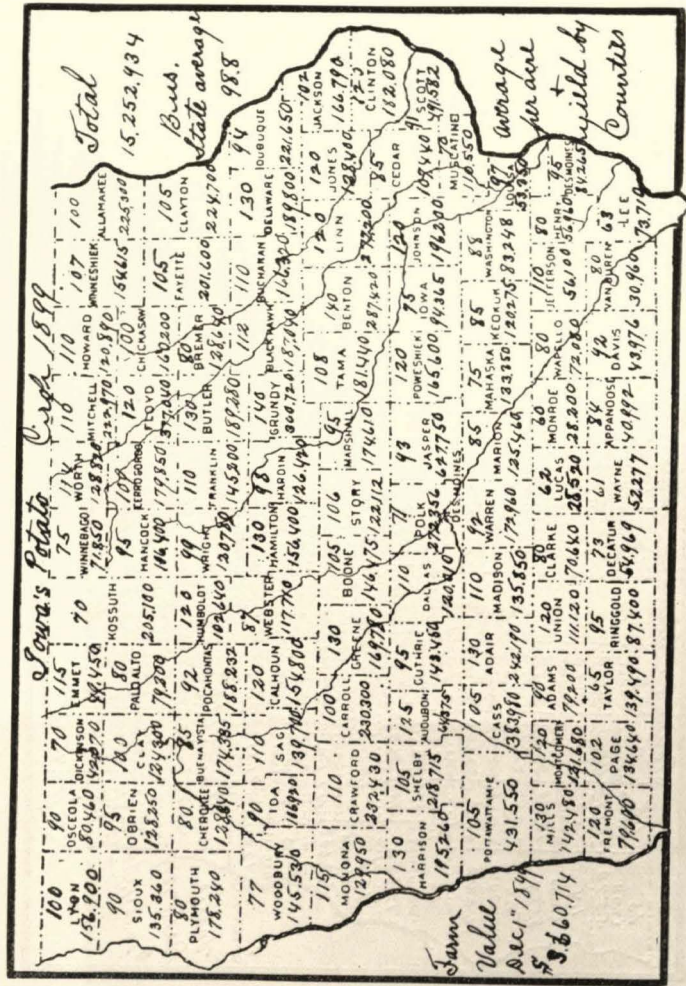 Iowa's Potato Crop 1899
Total
15,252,934
Bus.
State average
98.8
100
LYON
156,900
90
OSCEOLA
80,460
70
DICKINSON
115
EMMET
70
KOSSUTH
205,100
75
WINNEBAGO
71,850
114
WORTH
110
MITCHELL
222,970
110
HOWARD
120,890
107
WINNESHIEK
100
ALLAMAKEE
225,300
90
SIOUX
135,360
95
O'BRIEN
128,250
100
CLAY
124,200
80
PALO ALTO
79,200
95
HANCOCK
CERRO GORDO
179,850
120
FLOYD
100
CHICKASAW
105
FAYETTE
201,600
105
CLAYTON
224,700
80
PLYMOUTH
178,240
80
CHEROKEE
85
BUENA VISTA
92
POCAHONTAS
188,232
120
HUMBOLDT
102,640
99
WRIGHT
120,780
110
FRANKLIN
145,200
130
BUTLER
189,280
80
BREMER
128,640
77
WOODBURY
145,530
90
IDA
110
SAC
139,700
120
CALHOUN
154,800
87
WEBSTER
117,710
130
HAMILTON
156,400
98
HARDIN
126,420
140
GRUNDY
300,720
112
BLACKHAWK
187,040
110
BUCHANAN
130
DELAWARE
94
DUBUQUE
221,650
115
MONONA
129,950
110
CRAWFORD
232,430
100
CARROLL
230,300
130
GREENE
169,780
105
BOONE
146,475
106
STORY
122,112
95
MARSHALL
174,610
108
TAMA
181,440
140
BENTON
287,420
120
LINN
277,200
120
JONES
102
JACKSON
CLINTON
182,080
130
HARRISON
195,260
105
SHELBY
218,715
125
AUDUBON
95
GUTHRIE
110
DALLAS
71
POLK
272,356
93
JASPER
120
POWESHIEK
165,600
95
IOWA
94,365
120
JOHNSON
196,200
85
CEDAR
107,440
91
SCOTT
MUSCATINE
110,550
105
POTTAWATTAMIE
431,550
105
CASS
130
ADAIR
242,190
110
MADISON
135,850
92
WARREN
172,960
DES MOINES
85
MARION
125,460
75
MAHASKA
85
KEOKUK
120,275
88
WASHINGTON
83,248
97
LOUISA
130
MILLS
142,480
120
MONTGOMERY
121,680
90
ADAMS
79,200
120
UNION
111,120
80
CLARKE
70,640
62
LUCAS
60
MONROE
28,200
80
WAPELLO
72,080
110
JEFFERSON
56,100
80
HENRY
56,960
95
DESMOINES
84,265
120
FREMONT
102
PAGE
134,640
65
TAYLOR
139,490
95
RINGGOLD
87,400
73
DECATUR
61
WAYNE
52,277
84
APPANOOSE
40,992
92
DAVIS
43,976
80
VANBUREN
30,960
63
LEE
73,710
Farm
Value
Dec 1st 1899
average
per acre
+
yield by
Counties